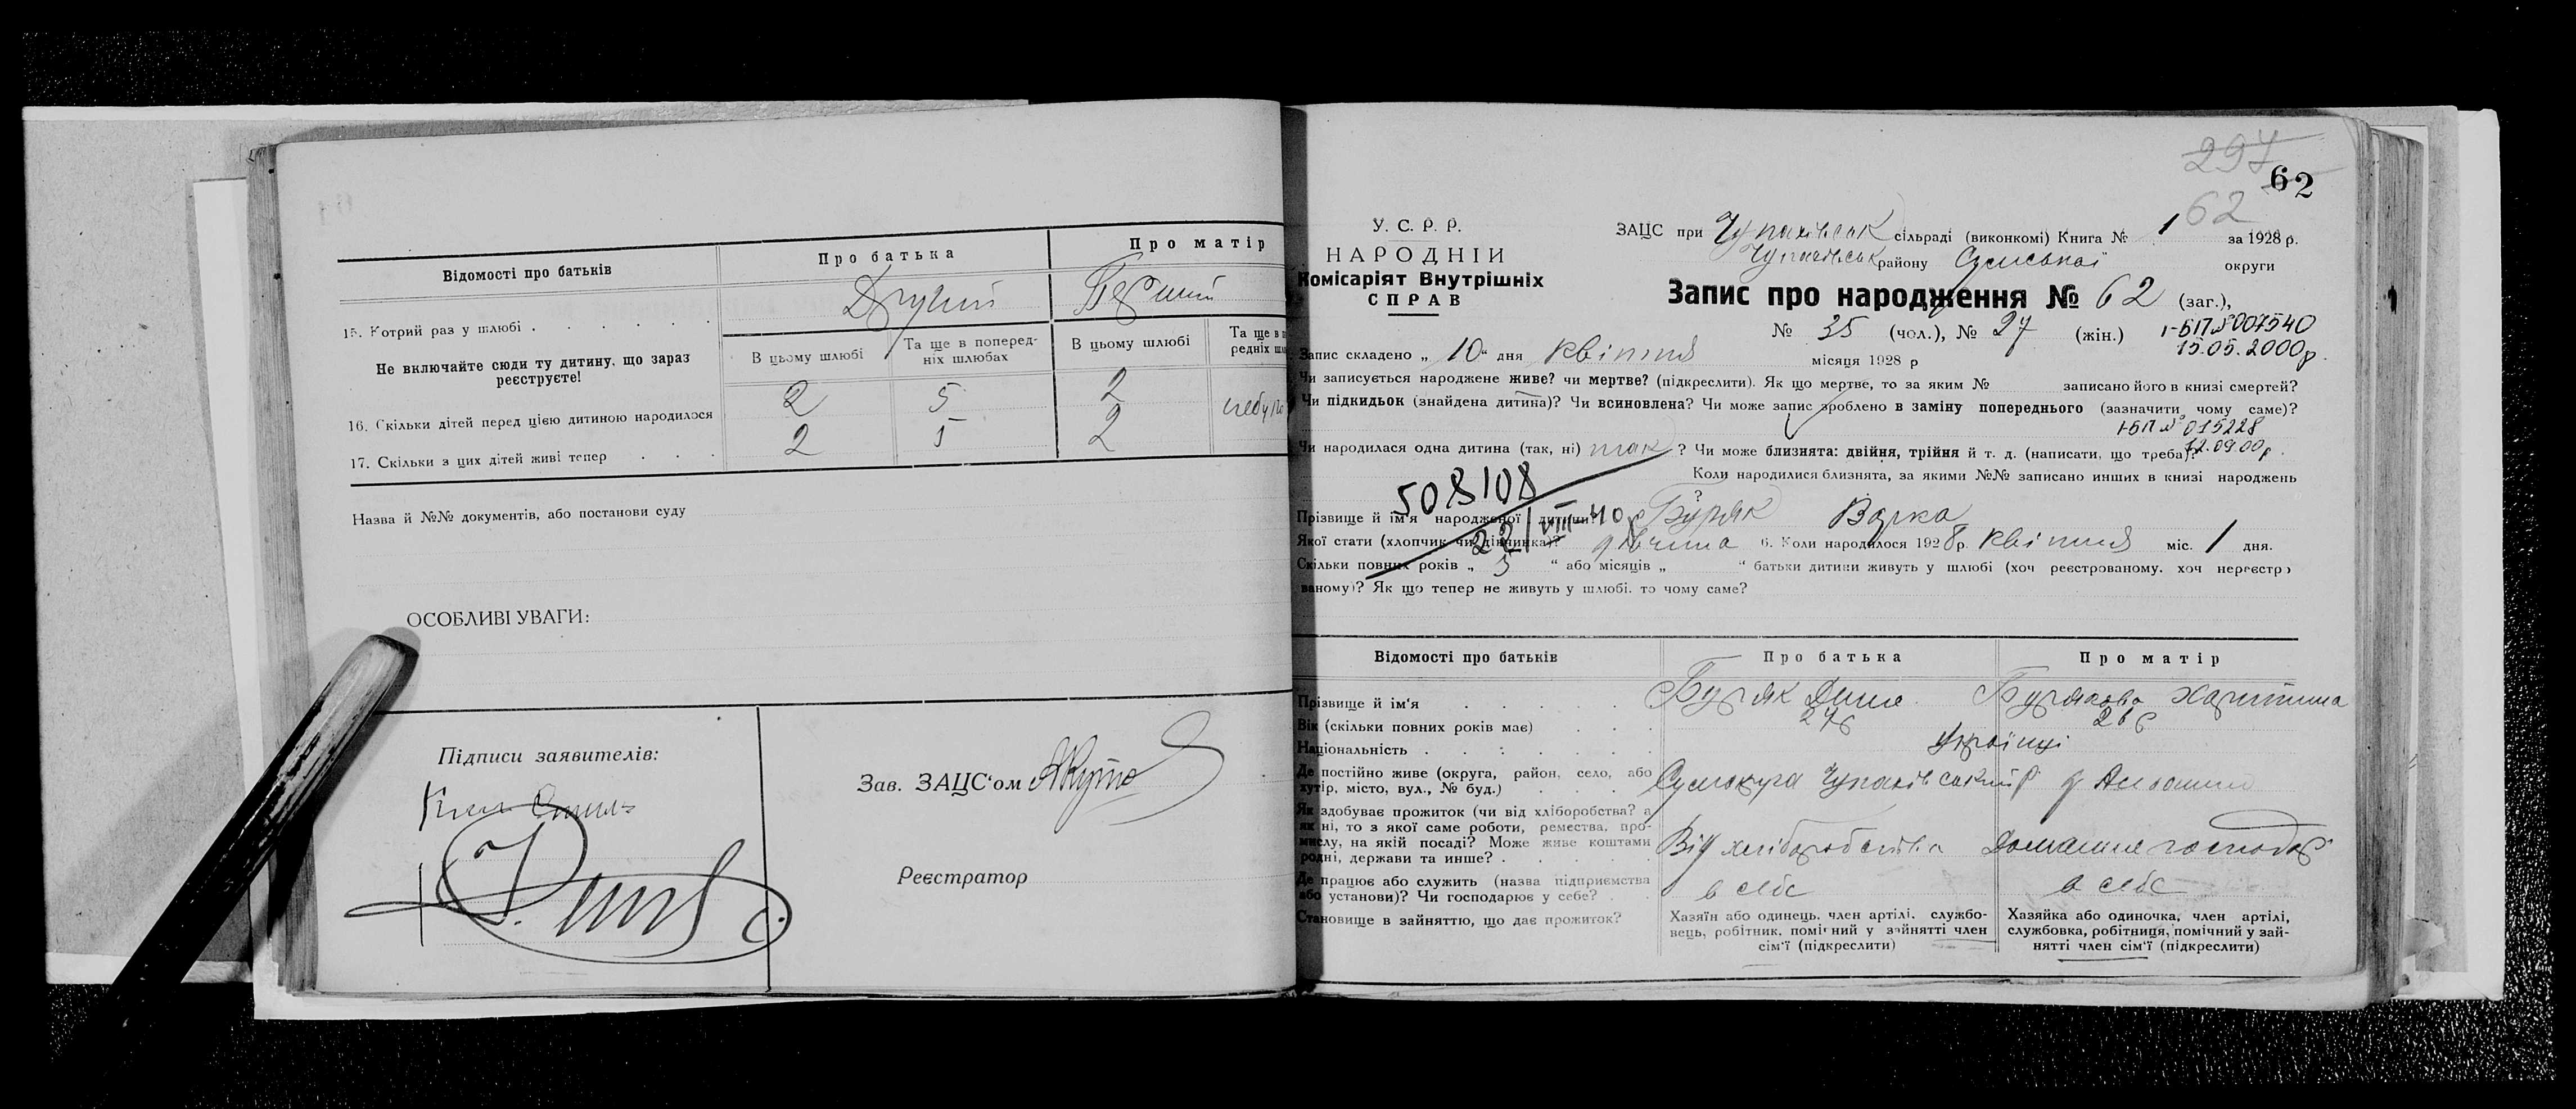 Відомості про батьків
Про батька
Про матір
15. Котрий раз у шлюбі
Другий
Перший
Не включайте сюди ту дитину, що зараз реєструєте!
В цьому шлюбі
Та ще в поперед-
ніх шлюбах
В цьому шлюбі
Та ще в п
редніх шл
16. Скільки дітей перед цією дитиною народилося
2 5 2 небуло
17. Скільки з цих дітей живі тепер
2 5 2
Назва й №№ документів, або постанови суду
ОСОБЛИВІ УВАГИ:
Підписи заявителів:
Зав. ЗАЦС'ом
Реєстратор
297
62
62
У. С. Р. Р.
НАРОДНІЙ
Комісаріят Внутрішніх
СПРАВ
ЗАЦС при Чупахівськ сільраді (виконкомі) Книга № 1 за 1928 р.
Чупахівськ району Сумської округи
Запис про народження № 62 (заг.),
№ 35 (чол.), № 27 (жін.)
1-БП № 007540
15.05.2000р.
Запис складено „ 10 " дня квітня місяця 1928 р
Чи записується народжене живе? чи мертве? (підкреслити). Як що мертве, то за яким № записано його в книзі смертей?
Чи підкидьок (знайдена дитина)? Чи всиновлена? Чи може запис зроблено в заміну попереднього (зазначити, чому саме)?
1-БП № 015228
12.09.00р.
Чи народилася одна дитина (так, ні) так ? Чи може близнята: двійня, трійня й т. д. (написати, що треба)?
Коли народилися близнята, за якими №№ записано инших в книзі народжень
?
508108
22/VIII-40р
Прізвище й ім'я народженої дитини? Буряк Варка
Якої стати (хлопчик чи дівчинка)? дівчина 6. Коли народилося 1928 р. квітня міс. 1 дня.
Скільки повних років „ 5 " або місяців „ " батьки дитини живуть у шлюбі (хоч реєстрованому, хоч нереєстро
ваному)? Як що тепер не живуть у шлюбі, то чому саме?
Відомості про батьків
Про батька
Про матір
Прізвище й ім'я
Буряк
Бурякова Харитина
Вік (скільки повних років має)
27р
26р
Національність
Українці
Де постійно живе (округа, район, село, або
хутір, місто, вул., № буд.)
Сумокруга Чупахівський р
Як здобуває прожиток (чи від хліборобства? а
як ні, то з якої саме роботи, ремества, про-
мислу, на якій посаді? Може живе коштами
родні, держави та инше?
Від хліборобства
Домашнє господар
Де працює або служить (назва підприємства
або установи)? Чи господарює у себе?
в себе
в себе
Становище в зайняттю, що дає прожиток?
Хазяїн або одинець, член артілі, службо-
вець, робітник, помічний у зайнятті член
сім'ї (підкреслити)
Хазяйка або одиночка, член артілі,
службовка, робітниця, помічний у зай-
нятті член сім'ї (підкреслити)